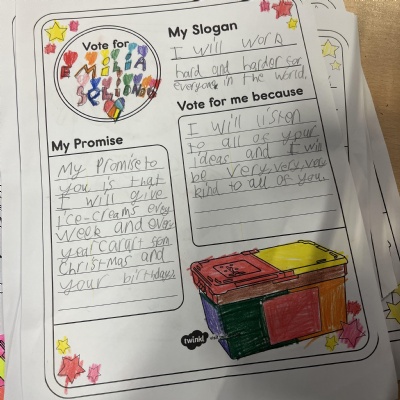 Vote for
EMILIA
My Slogan
I will work
hard and harder for
everyone in the world.
Vote for me because
I will listen
to all of your
ideas and I will
be very, very, very
kind to all of you.
My Promise
My Promise to
you is that
I will give
ice-creams every
week and every
year
Christmas and
your birthdays
twinkl